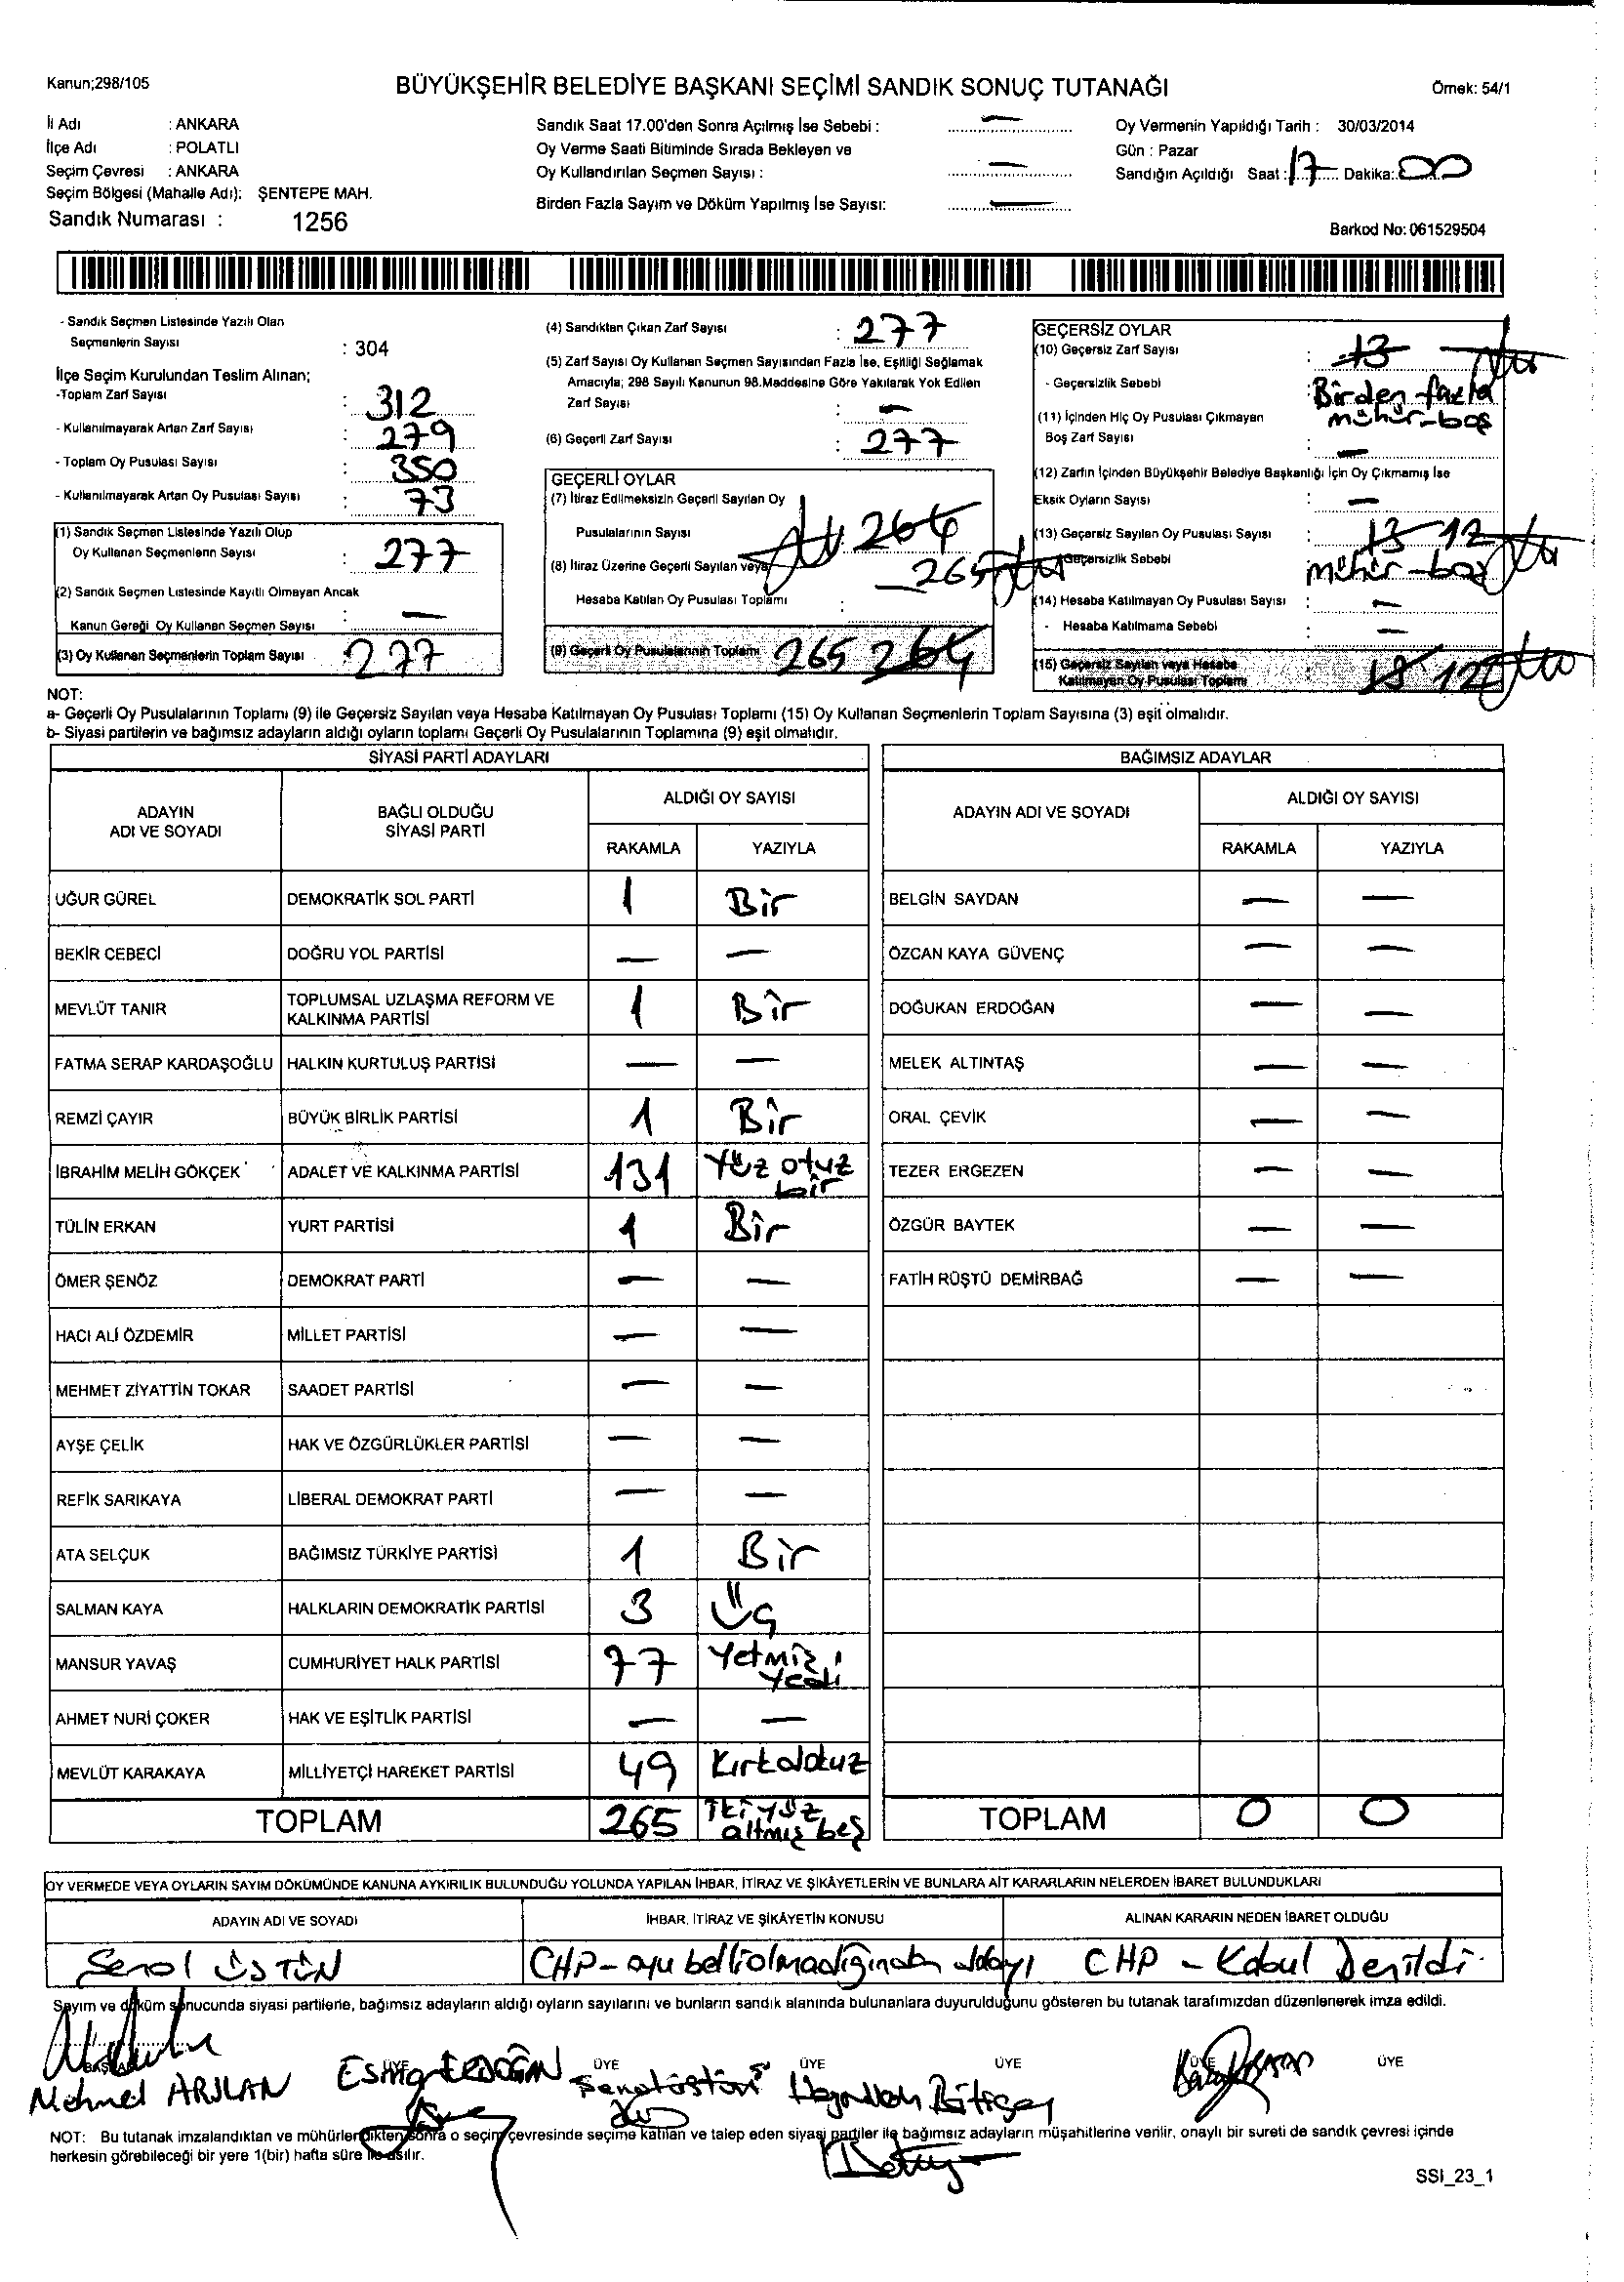 Kanun;298/105
BÜYÜKŞEHİR BELEDİYE BAŞKANI SEÇİMİ SANDIK SONUÇ TUTANAĞI
Örnek: 54/1
İl Adı : ANKARA
İlçe Adı : POLATLI
Seçim Çevresi : ANKARA
Seçim Bölgesi (Mahalle Adı): ŞENTEPE MAH.
Sandık Numarası : 1256
Sandık Saat 17.00'den Sonra Açılmış İse Sebebi : —
Oy Verme Saati Bitiminde Sırada Bekleyen ve
Oy Kullandırılan Seçmen Sayısı : —
Birden Fazla Sayım ve Döküm Yapılmış İse Sayısı: —
Oy Vermenin Yapıldığı Tarih : 30/03/2014
Gün : Pazar
Sandığın Açıldığı Saat : 17 Dakika: 00
Barkod No: 061529504
- Sandık Seçmen Listesinde Yazılı Olan
Seçmenlerin Sayısı : 304
İlçe Seçim Kurulundan Teslim Alınan;
-Toplam Zarf Sayısı : 312
- Kullanılmayarak Artan Zarf Sayısı : 279
- Toplam Oy Pusulası Sayısı : 350
- Kullanılmayarak Artan Oy Pusulası Sayısı : 73
(1) Sandık Seçmen Listesinde Yazılı Olup
Oy Kullanan Seçmenlerin Sayısı : 277
(2) Sandık Seçmen Listesinde Kayıtlı Olmayan Ancak
Kanun Gereği Oy Kullanan Seçmen Sayısı : —
(3) Oy Kullanan Seçmenlerin Toplam Sayısı : 277
(4) Sandıktan Çıkan Zarf Sayısı : 277
(5) Zarf Sayısı Oy Kullanan Seçmen Sayısından Fazla İse, Eşitliği Sağlamak
Amacıyla; 298 Sayılı Kanunun 98.Maddesine Göre Yakılarak Yok Edilen
Zarf Sayısı : —
(6) Geçerli Zarf Sayısı : 277
GEÇERLİ OYLAR
(7) İtiraz Edilmeksizin Geçerli Sayılan Oy
Pusulalarının Sayısı 264
(8) İtiraz Üzerine Geçerli Sayılan veya 265
Hesaba Katılan Oy Pusulası Toplamı :
(9) Geçerli Oy Pusulalarının Toplamı 265 264
GEÇERSİZ OYLAR
(10) Geçersiz Zarf Sayısı : 13
- Geçersizlik Sebebi : Birden fazla
mühür-boş
(11) İçinden Hiç Oy Pusulası Çıkmayan
Boş Zarf Sayısı : —
(12) Zarfın İçinden Büyükşehir Belediye Başkanlığı İçin Oy Çıkmamış İse
Eksik Oyların Sayısı : —
(13) Geçersiz Sayılan Oy Pusulası Sayısı : 13 12
Geçersizlik Sebebi mühür-boş
(14) Hesaba Katılmayan Oy Pusulası Sayısı : —
- Hesaba Katılmama Sebebi : —
(15) Geçersiz Sayılan veya Hesaba
Katılmayan Oy Pusulası Toplamı : 13 12
NOT:
a- Geçerli Oy Pusulalarının Toplamı (9) ile Geçersiz Sayılan veya Hesaba Katılmayan Oy Pusulası Toplamı (15) Oy Kullanan Seçmenlerin Toplam Sayısına (3) eşit olmalıdır.
b- Siyasi partilerin ve bağımsız adayların aldığı oyların toplamı Geçerli Oy Pusulalarının Toplamına (9) eşit olmalıdır.
SİYASİ PARTİ ADAYLARI
ADAYIN ADI VE SOYADI BAĞLI OLDUĞU SİYASİ PARTİ ALDIĞI OY SAYISI
RAKAMLA YAZIYLA
UĞUR GÜREL DEMOKRATİK SOL PARTİ 1 Bir
BEKİR CEBECİ DOĞRU YOL PARTİSİ — —
MEVLÜT TANIR TOPLUMSAL UZLAŞMA REFORM VE KALKINMA PARTİSİ 1 Bir
FATMA SERAP KARDAŞOĞLU HALKIN KURTULUŞ PARTİSİ — —
REMZİ ÇAYIR BÜYÜK BİRLİK PARTİSİ 1 Bir
İBRAHİM MELİH GÖKÇEK ADALET VE KALKINMA PARTİSİ 131 Yüz otuz bir
TÜLİN ERKAN YURT PARTİSİ 1 Bir
ÖMER ŞENÖZ DEMOKRAT PARTİ — —
HACI ALİ ÖZDEMİR MİLLET PARTİSİ — —
MEHMET ZİYATTİN TOKAR SAADET PARTİSİ — —
AYŞE ÇELİK HAK VE ÖZGÜRLÜKLER PARTİSİ — —
REFİK SARIKAYA LİBERAL DEMOKRAT PARTİ — —
ATA SELÇUK BAĞIMSIZ TÜRKİYE PARTİSİ 1 Bir
SALMAN KAYA HALKLARIN DEMOKRATİK PARTİSİ 3 Üç
MANSUR YAVAŞ CUMHURİYET HALK PARTİSİ 77 Yetmiş yedi
AHMET NURİ ÇOKER HAK VE EŞİTLİK PARTİSİ — —
MEVLÜT KARAKAYA MİLLİYETÇİ HAREKET PARTİSİ 49 Kırkdokuz
TOPLAM 265 İki yüz altmış beş
BAĞIMSIZ ADAYLAR
ADAYIN ADI VE SOYADI ALDIĞI OY SAYISI
RAKAMLA YAZIYLA
BELGİN SAYDAN — —
ÖZCAN KAYA GÜVENÇ — —
DOĞUKAN ERDOĞAN — —
MELEK ALTINTAŞ — —
ORAL ÇEVİK — —
TEZER ERGEZEN — —
ÖZGÜR BAYTEK — —
FATİH RÜŞTÜ DEMİRBAĞ — —
TOPLAM 0 0
OY VERMEDE VEYA OYLARIN SAYIM DÖKÜMÜNDE KANUNA AYKIRILIK BULUNDUĞU YOLUNDA YAPILAN İHBAR, İTİRAZ VE ŞİKÂYETLERİN VE BUNLARA AİT KARARLARIN NELERDEN İBARET BULUNDUKLARI
ADAYIN ADI VE SOYADI İHBAR, İTİRAZ VE ŞİKÂYETİN KONUSU ALINAN KARARIN NEDEN İBARET OLDUĞU
Şenol ÜSTÜN CHP- oyu belli olmadığından dolayı CHP - Kabul Denildi.
Sayım ve döküm sonucunda siyasi partilerle, bağımsız adayların aldığı oyların sayılarını ve bunların sandık alanında bulunanlara duyurulduğunu gösteren bu tutanak tarafımızdan düzenlenerek imza edildi.
BAŞKAN ÜYE ÜYE ÜYE ÜYE ÜYE ÜYE
Mehmet ARSLAN Esma ERDOĞAN Şenol Üstün
NOT: Bu tutanak imzalandıktan ve mühürlendikten sonra o seçim çevresinde seçime katılan ve talep eden siyasi partiler ile bağımsız adayların müşahitlerine verilir, onaylı bir sureti de sandık çevresi içinde
herkesin görebileceği bir yere 1(bir) hafta süre ile asılır.
SSI_23_1